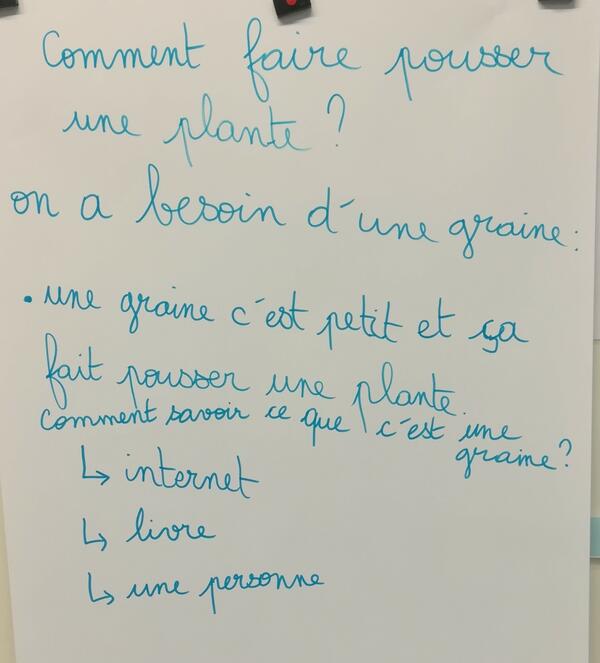 Comment faire pousser
une plante ?
on a besoin d'une graine :
• une graine c'est petit et ça
fait pousser une plante.
comment savoir ce que c'est une
graine ?
↳ internet
↳ livre
↳ une personne